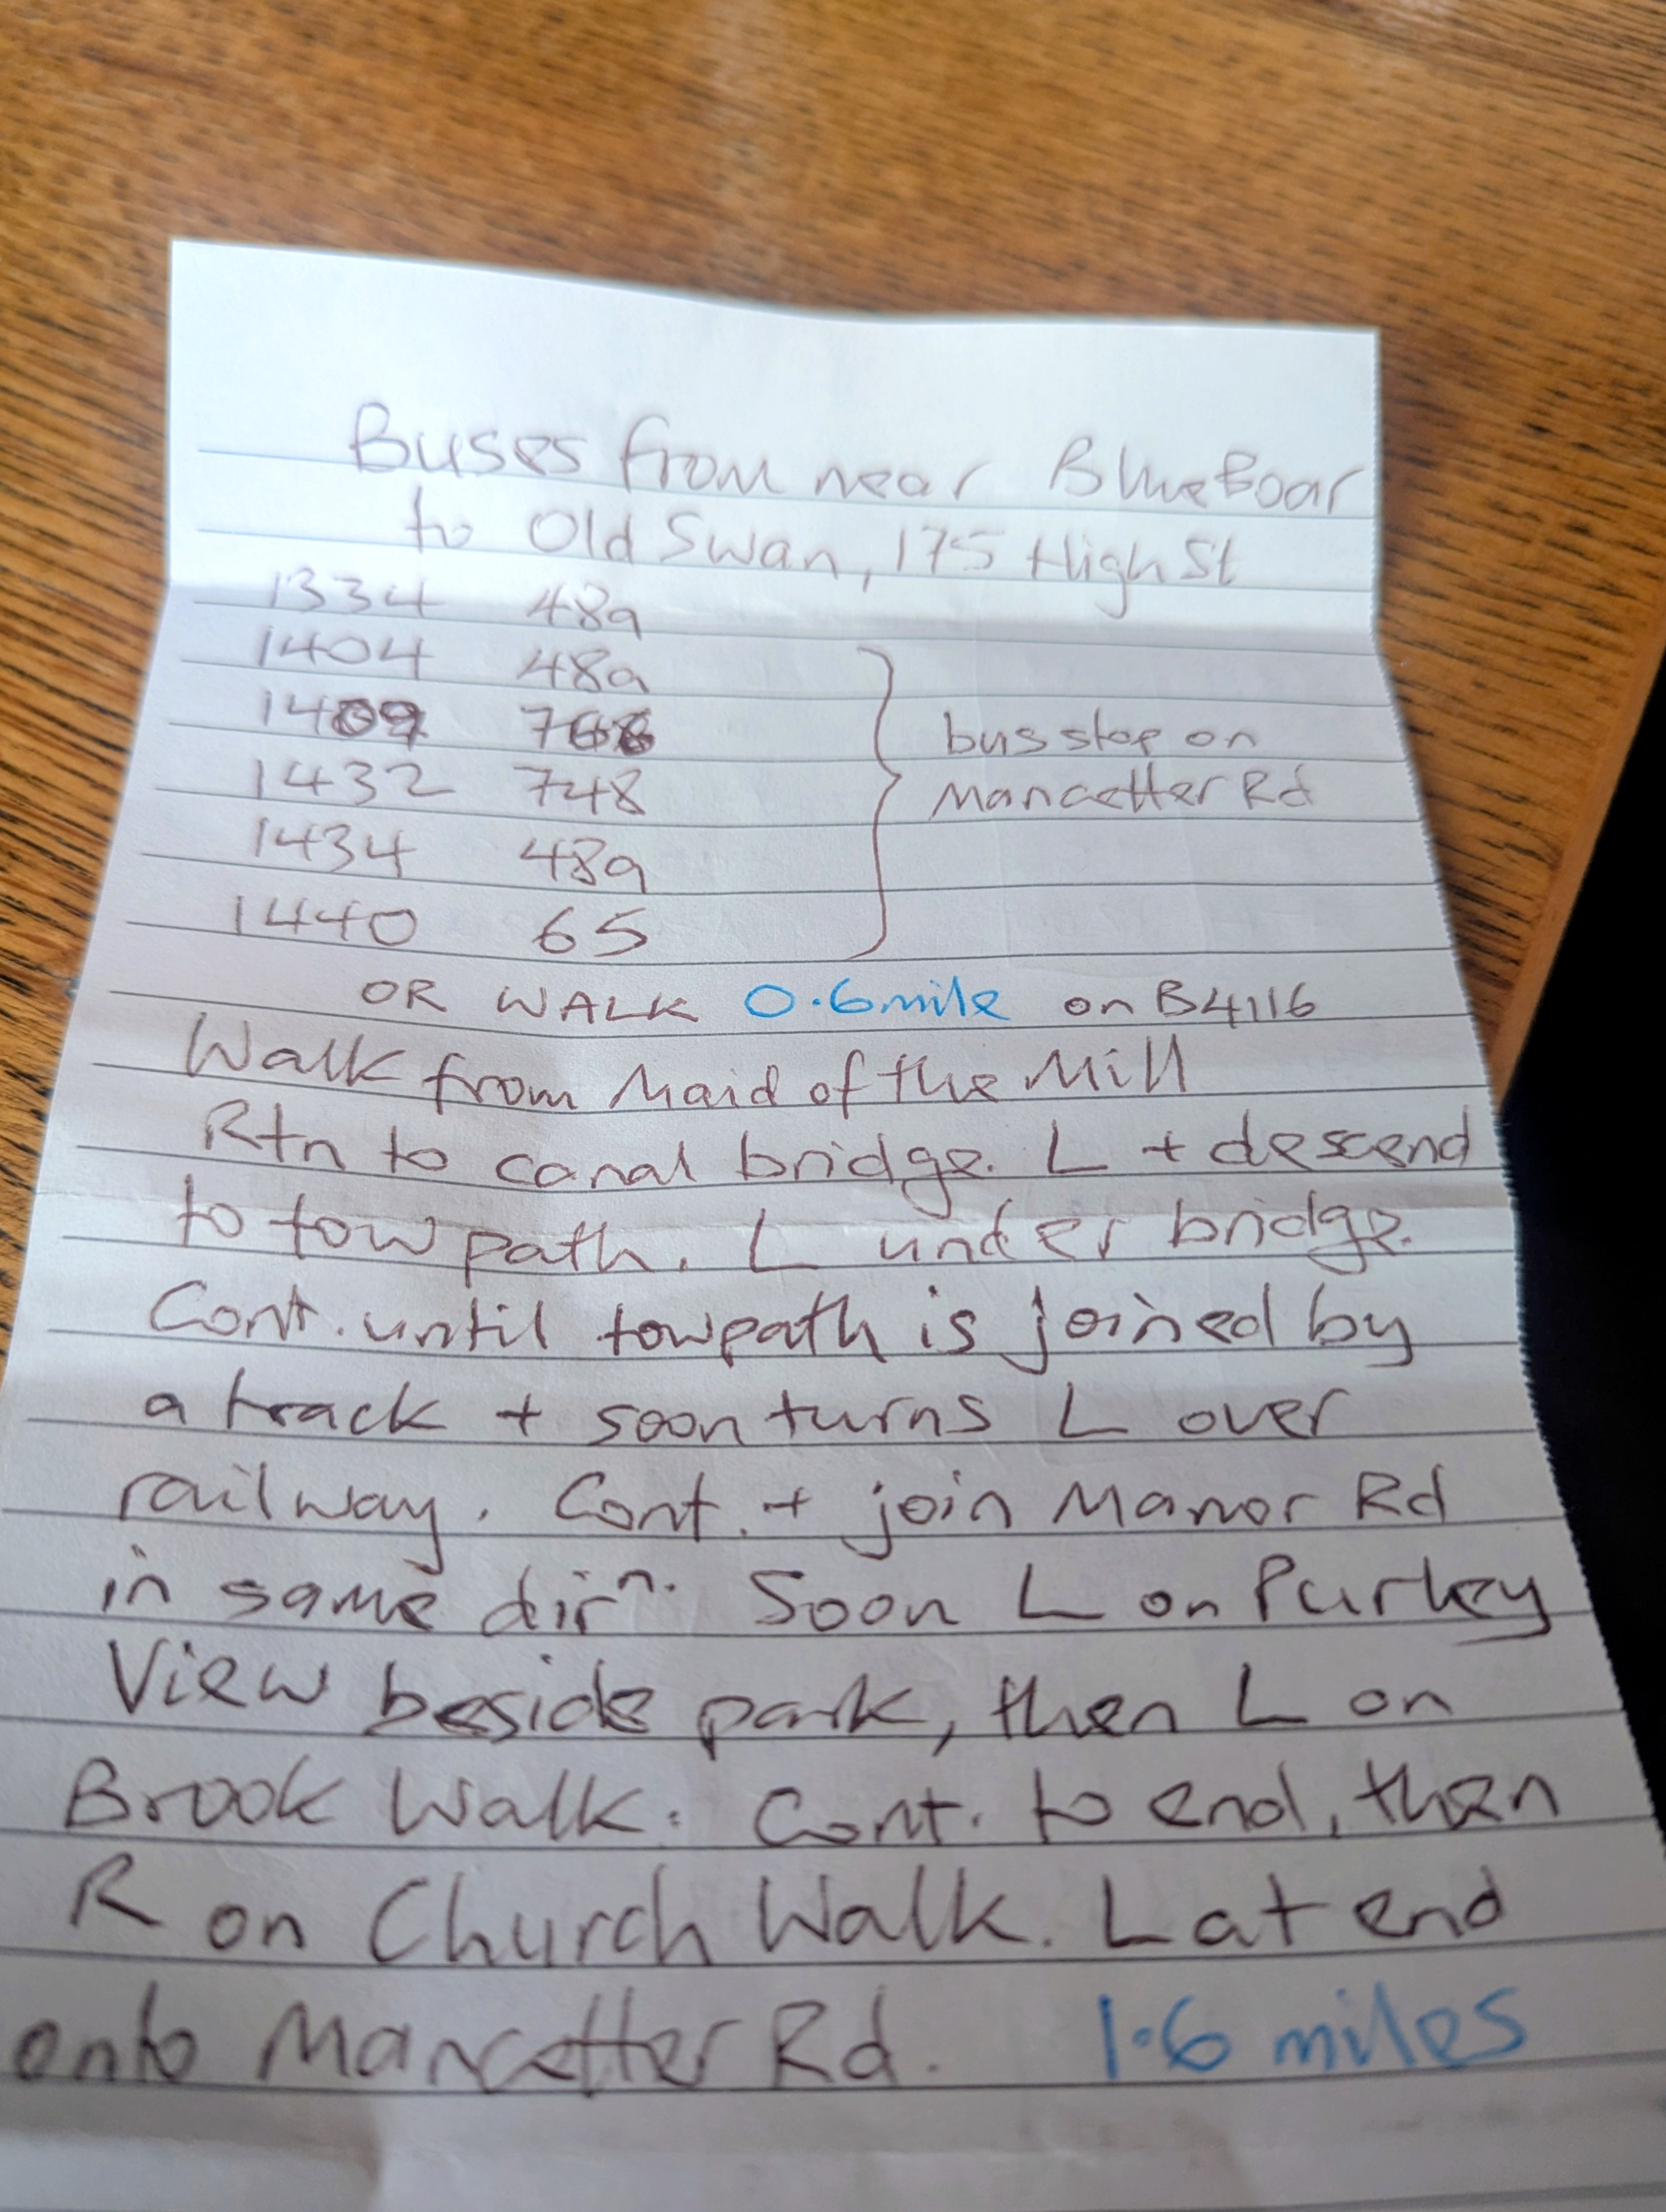 Buses from near Blue Boar
to Old Swan, 175 High St
1334 48a
1404 48a
1409 766
1432 748
1434 48a
1440 65
bus stop on
Mancetter Rd
OR WALK 0.6mile on B4116
Walk from Maid of the Mill
Rtn to canal bridge. L + descend
to tow path. L under bridge.
Cont. until towpath is joined by
a track + soon turns L over
railway. Cont. + join Manor Rd
in same dirn. Soon L on Purley
View beside park, then L on
Brook Walk. Cont. to end, then
R on Church Walk. L at end
onto Mancetter Rd. 1.6 miles